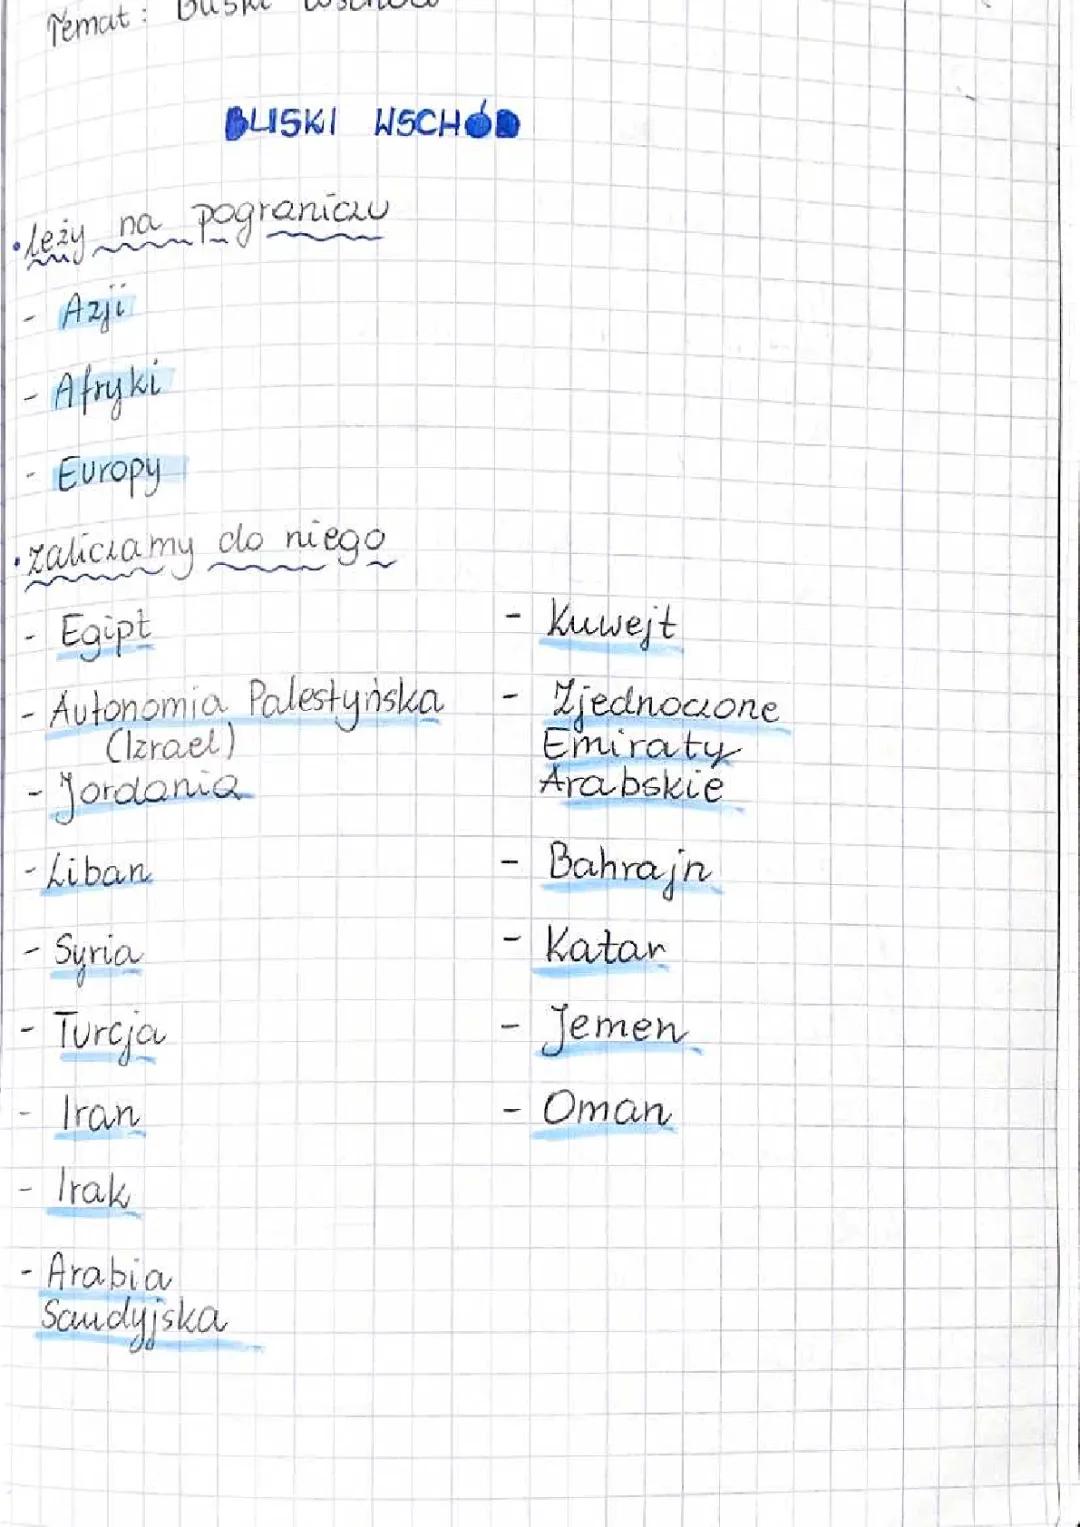 Temat: Bliski Wschód
BLISKI WSCHÓD
• leży na pograniczu
- Azji
- Afryki
- Europy
• zaliczamy do niego
- Egipt
- Autonomia Palestyńska
(Izrael)
- Jordania
- Liban
- Syria
- Turcja
- Iran
- Irak
- Arabia
Saudyjska
- Kuwejt
- Zjednoczone
Emiraty
Arabskie
- Bahrajn
- Katar
- Jemen
- Oman